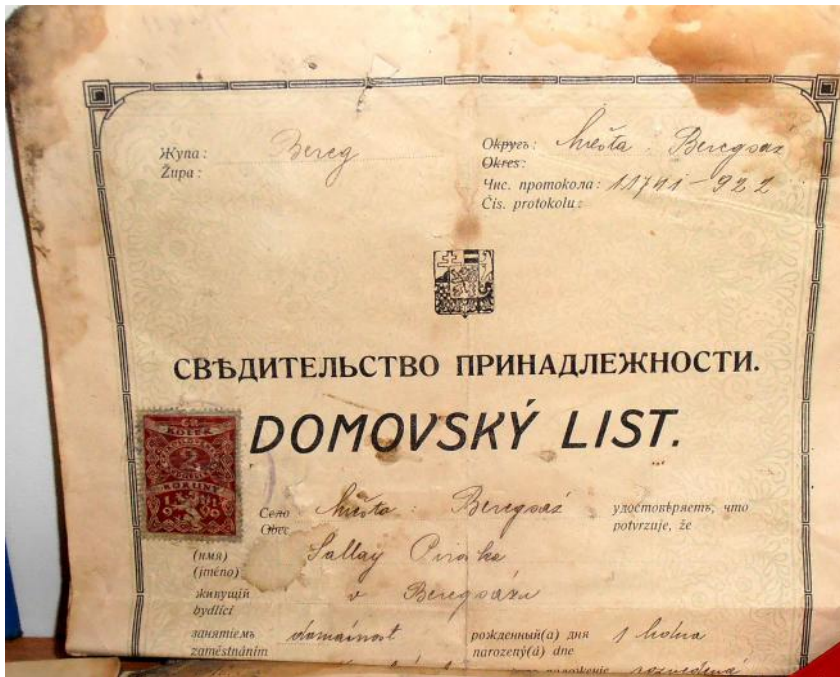 Жупа: Bereg Округъ: Města: Beregsáz
Župa: Okres:
Чис. протокола: 11741-922
Čís. protokolu:
СВѢДИТЕЛЬСТВО ПРИНАДЛЕЖНОСТИ.
DOMOVSKÝ LIST.
2
Село Města: Beregsáz удостовѣряетъ, что
Obec potvrzuje, že
(имя) Sallay Piroska
(jméno)
живущій v Beregsázu
bydlící
занятіемъ domácnost рожденный(а) дня 1
zaměstnáním narozený(á) dne
положеніе rozvedená